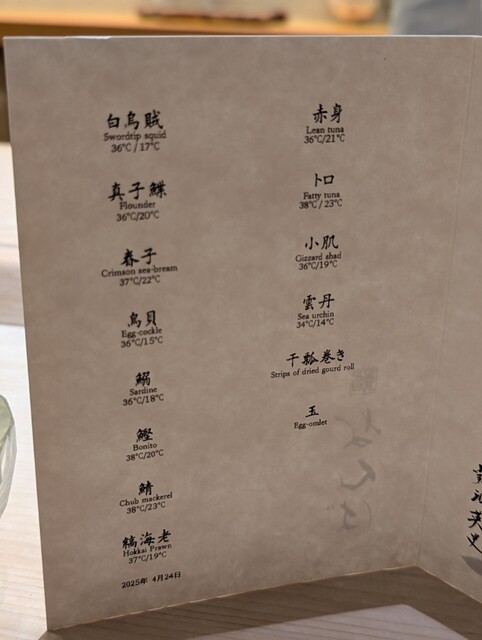 白烏賊
Swordtip squid
36℃ / 17℃
真子鰈
Flounder
36℃/20℃
春子
Crimson sea-bream
37℃/22℃
鳥貝
Egg-cockle
36℃/15℃
鰯
Sardine
36℃/18℃
鰹
Bonito
38℃/20℃
鯖
Chub mackerel
38℃/23℃
縞海老
Hokkai Prawn
37℃/19℃
2025年 4月24日
赤身
Lean tuna
36℃/21℃
トロ
Fatty tuna
38℃ / 23℃
小肌
Gizzard shad
36℃/19℃
雲丹
Sea urchin
34℃/14℃
干瓢巻き
Strips of dried gourd roll
玉
Egg-omlet
なんば